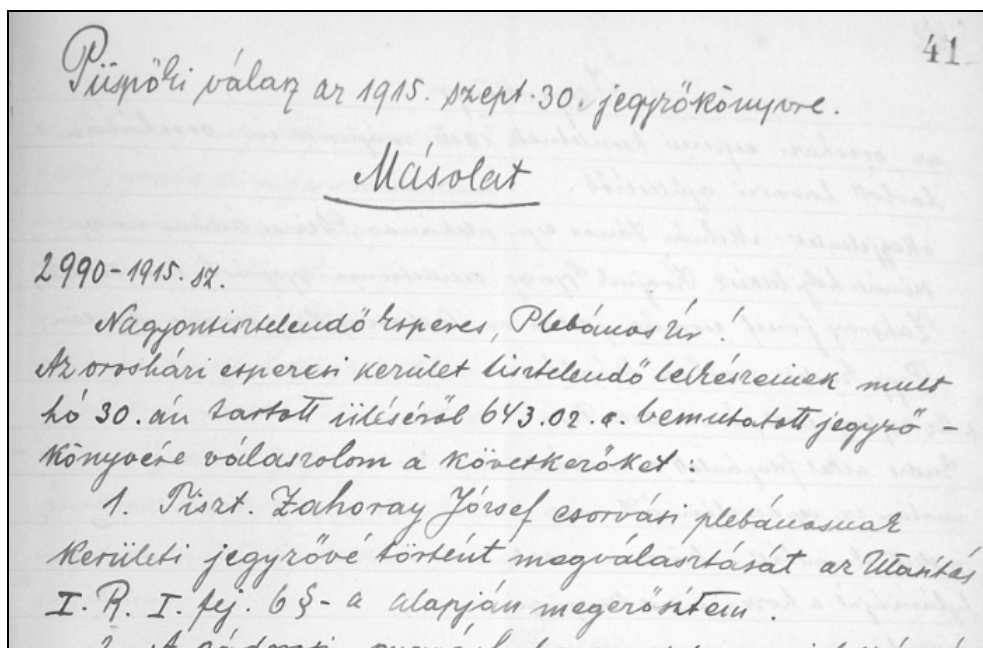 41.
Püspöki válasz az 1915. szept. 30. jegyzőkönyvre.
Másolat
2990-1915. sz.
Nagyontisztelendő Esperes, Plébános Úr!
Az orosházi esperesi kerület tisztelendő lelkészeinek mult
hó 30.-án tartott üléséről 643.02. a. bemutatott jegyző-
könyvére válaszolom a következőket:
1. Tiszt. Zahoray József csorvási plébánosnak
kerületi jegyzővé történt megválasztását az Utasítás
I. R. I. fej. 6 §-a alapján megerősítem.
2. A